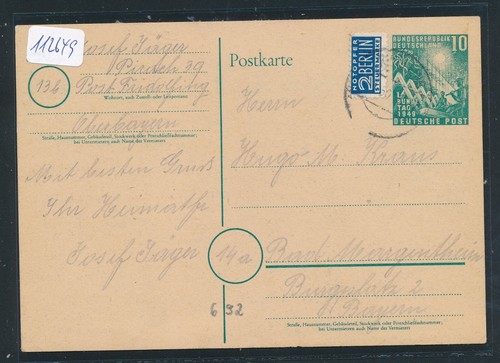 112649
Josef Jäger
Pirach 39
13b
Post
Wohnort, auch Zustell- oder Leitpostamt
Oberbayern
Straße, Hausnummer, Gebäudeteil, Stockwerk oder Postschließfachnummer;
bei Untermietern auch Name des Vermieters
Mit besten Gruß
Ihr
Josef Jäger
Postkarte
NOTOPFER
2 BERLIN
STEUERMARKE
BUNDESREPUBLIK 10
DEUTSCHLAND
1.
BUNDES
TAG
1949
DEUTSCHE POST
Herrn
Hugo M. Kraus
14a
Bad Mergentheim
Burgplatz 2
Straße, Hausnummer, Gebäudeteil, Stockwerk oder Postschließfachnummer;
bei Untermietern auch Name des Vermieters
6 92